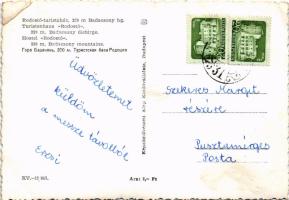 Rodostó-turistaház, 370 m Badacsony hg.
Turistenhaus «Rodostó».
370 m. Badacsony Gebirge.
Hostel «Rodostó».
370 m. Badacsony mountains.
Гора Бадачонь, 370 м. Туристская база Родошто
Üdvözletemet
küldöm
a messze távolból
Erzsi
Szekeres Margit
részére
Pusztamérges
Posta
Képzőművészeti Alap Kiadóvállalata, Budapest
Ára: 1,- Ft